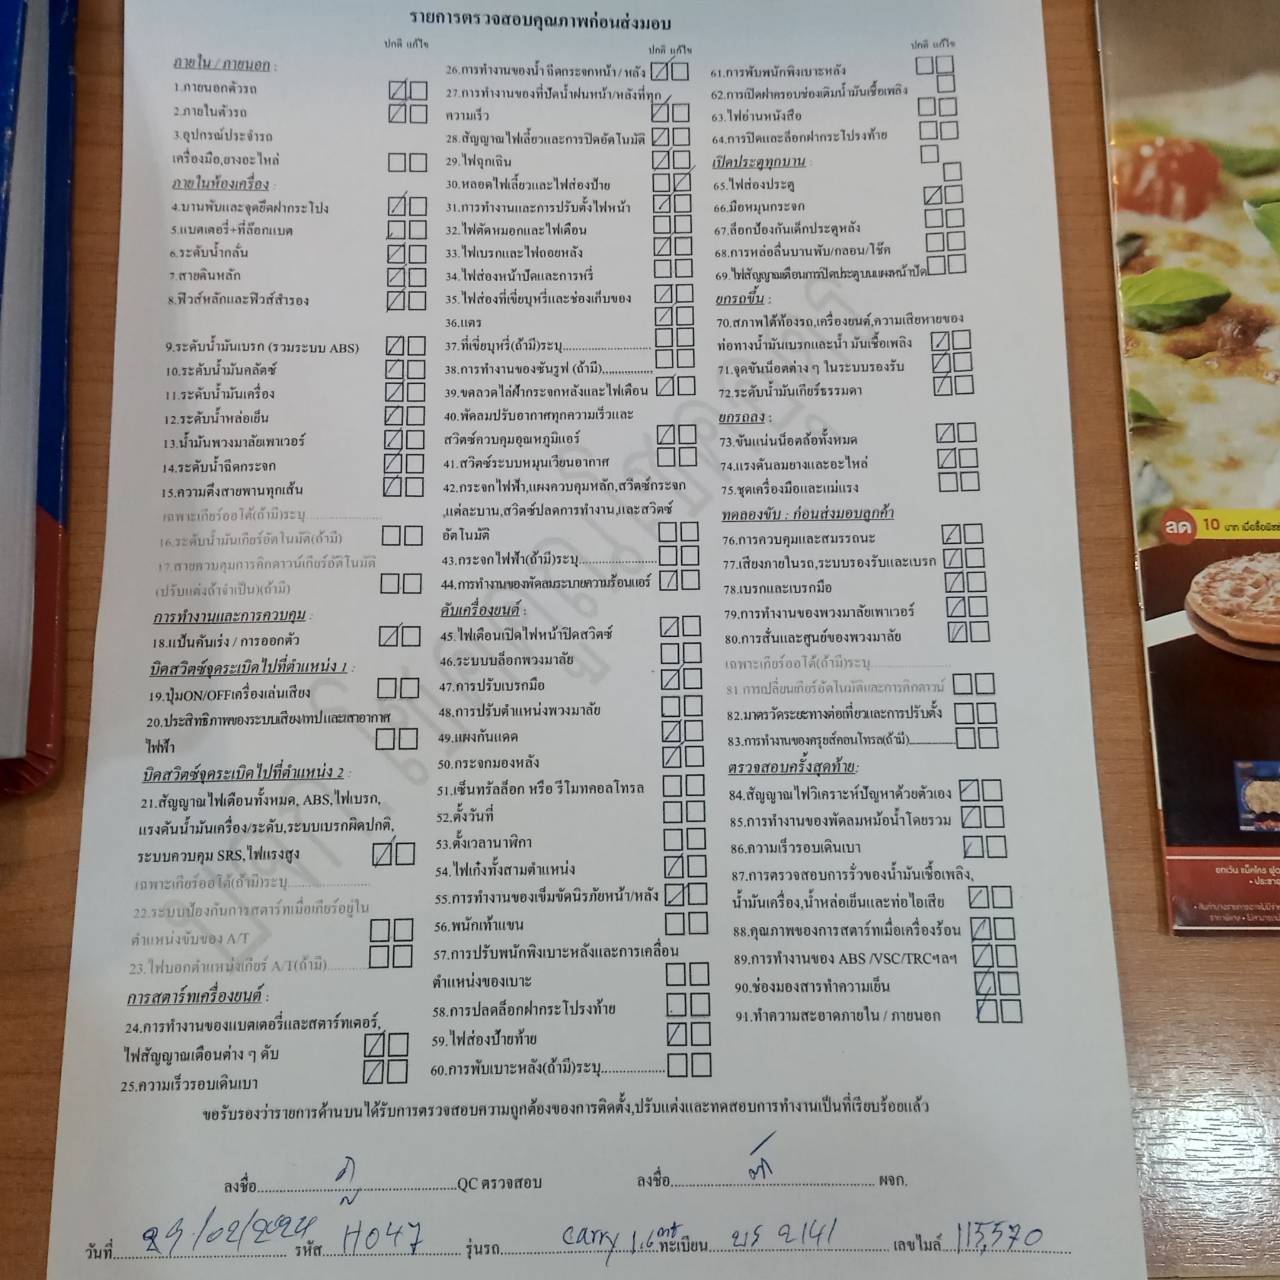 รายการตรวจสอบคุณภาพก่อนส่งมอบ
ปกติ แก้ไข
ภายใน / ภายนอก :
1.ภายนอกตัวรถ
2.ภายในตัวรถ
3.อุปกรณ์ประจำรถ
เครื่องมือ,ยางอะไหล่
ภายในห้องเครื่อง :
4.บานพับและจุดยึดฝากระโปง
5.แบตเตอรี่+ที่ล๊อกแบต
6.ระดับน้ำกลั่น
7.สายดินหลัก
8.ฟิวส์หลักและฟิวส์สำรอง
9.ระดับน้ำมันเบรก (รวมระบบ ABS)
10.ระดับน้ำมันคลัตช์
11.ระดับน้ำมันเครื่อง
12.ระดับน้ำหล่อเย็น
13.น้ำมันพวงมาลัยพาเวอร์
14.ระดับน้ำฉีดกระจก
15.ความตึงสายพานทุกเส้น
เฉพาะเกียร์ออโต้(ถ้ามี)ระบุ
16.ระดับน้ำมันเกียร์อัตโนมัติ(ถ้ามี)
17.สายควบคุมการคิกดาวน์เกียร์อัติโนมัติ
(ปรับแต่งถ้าจำเป็น)(ถ้ามี)
การทำงานและการควบคุม :
18.แป้นคันเร่ง / การออกตัว
บิดสวิตซ์จุดระเบิดไปที่ตำแหน่ง 1 :
19.ปุ่มON/OFFเครื่องเล่นเสียง
20.ประสิทธิภาพของระบบเสียง/เทป และเสาอากาศ
ไฟฟ้า
บิดสวิตซ์จุดระเบิดไปที่ตำแหน่ง 2 :
21.สัญญาณไฟเตือนทั้งหมด, ABS,ไฟเบรก,
แรงดันน้ำมันเครื่อง/ระดับ,ระบบเบรกผิดปกติ,
ระบบควบคุม SRS,ไฟแรงสูง
เฉพาะเกียร์ออโต้(ถ้ามี)ระบุ
22.ระบบป้องกันการสตาร์ทเมื่อเกียร์อยู่ใน
ตำแหน่งขับของ A/T
23.ไฟบอกตำแหน่งเกียร์ A/T(ถ้ามี)
การสตาร์ทเครื่องยนต์ :
24.การทำงานของแบตเตอรี่และสตาร์ทเตอร์,
ไฟสัญญาณเตือนต่าง ๆ ดับ
25.ความเร็วรอบเดินเบา
ปกติ แก้ไข
26.การทำงานของน้ำ ฉีดกระจกหน้า / หลัง
27.การทำงานของที่ปัดน้ำฝนหน้า/หลังที่ทุก
ความเร็ว
28.สัญญาณไฟเลี้ยวและการปิดอัตโนมัติ
29.ไฟฉุกเฉิน
30.หลอดไฟเลี้ยวและไฟส่องป้าย
31.การทำงานและการปรับตั้งไฟหน้า
32.ไฟตัดหมอกและไฟเตือน
33.ไฟเบรกและไฟถอยหลัง
34.ไฟส่องหน้าปัดและการหรี่
35.ไฟส่องที่เขี่ยบุหรี่และช่องเก็บของ
36.แตร
37.ที่เขี่ยบุหรี่(ถ้ามี)ระบุ
38.การทำงานของซันรูฟ (ถ้ามี)
39.ขดลวดไล่ฝ้ากระจกหลังและไฟเตือน
40.พัดลมปรับอากาศทุกความเร็วและ
สวิตซ์ควบคุมอุณหภูมิแอร์
41.สวิตซ์ระบบหมุนเวียนอากาศ
42.กระจกไฟฟ้า,แผงควบคุมหลัก,สวิตช์กระจก
,แต่ละบาน,สวิตซ์ปลดการทำงาน,และสวิตซ์
อัตโนมัติ
43.กระจกไฟฟ้า(ถ้ามี)ระบุ
44.การทำงานของพัดลมระบายความร้อนแอร์
ดับเครื่องยนต์ :
45.ไฟเตือนเปิดไฟหน้าปิดสวิตซ์
46.ระบบบล็อกพวงมาลัย
47.การปรับเบรกมือ
48.การปรับตำแหน่งพวงมาลัย
49.แผงกันแดด
50.กระจกมองหลัง
51.เซ็นทรัลล็อก หรือ รีโมทคอลโทรล
52.ตั้งวันที่
53.ตั้งเวลานาฬิกา
54.ไฟเก๋งทั้งสามตำแหน่ง
55.การทำงานของเข็มขัดนิรภัยหน้า/หลัง
56.พนักเท้าแขน
57.การปรับพนักพิงเบาะหลังและการเคลื่อน
ตำแหน่งของเบาะ
58.การปลดล็อกฝากระโปรงท้าย
59.ไฟส่องป้ายท้าย
60.การพับเบาะหลัง(ถ้ามี)ระบุ
ปกติ แก้ไข
61.การพับพนักพิงเบาะหลัง
62.การเปิดฝาครอบช่องเติมน้ำมันเชื้อเพลิง
63.ไฟอ่านหนังสือ
64.การปิดและล็อกฝากระโปรงท้าย
เปิดประตูทุกบาน :
65.ไฟส่องประตู
66.มือหมุนกระจก
67.ล็อกป้องกันเด็กประตูหลัง
68.การหล่อลื่นบานพับ/กลอน/โช๊ค
69.ไฟสัญญาณเตือนการปิดประตูบนแผงหน้าปัด
ยกรถขึ้น :
70.สภาพใต้ท้องรถ,เครื่องยนต์,ความเสียหายของ
ท่อทางน้ำมันเบรกและน้ำ มันเชื้อเพลิง
71.จุดขันน็อตต่าง ๆ ในระบบรองรับ
72.ระดับน้ำมันเกียร์ธรรมดา
ยกรถลง :
73.ขันแน่นน็อตล้อทั้งหมด
74.แรงดันลมยางและอะไหล่
75.ชุดเครื่องมือและแม่แรง
ทดลองขับ : ก่อนส่งมอบลูกค้า
76.การควบคุมและสมรรถนะ
77.เสียงภายในรถ,ระบบรองรับและเบรก
78.เบรกและเบรกมือ
79.การทำงานของพวงมาลัยเพาเวอร์
80.การสั่นและศูนย์ของพวงมาลัย
เฉพาะเกียร์ออโต้(ถ้ามี)ระบุ
81.การเปลี่ยนเกียร์อัตโนมัติและการคิกดาวน์
82.มาตรวัดระยะทางต่อเที่ยวและการปรับตั้ง
83.การทำงานของครุยส์คอนโทรล(ถ้ามี)
ตรวจสอบครั้งสุดท้าย:
84.สัญญาณไฟวิเคราะห์ปัญหาด้วยตัวเอง
85.การทำงานของพัดลมหม้อน้ำโดยรวม
86.ความเร็วรอบเดินเบา
87.การตรวจสอบการรั่วของน้ำมันเชื้อเพลิง,
น้ำมันเครื่อง,น้ำหล่อเย็นและท่อไอเสีย
88.คุณภาพของการสตาร์ทเมื่อเครื่องร้อน
89.การทำงานของ ABS /VSC/TRCฯลฯ
90.ช่องมองสารทำความเย็น
91.ทำความสะอาดภายใน / ภายนอก
ขอรับรองว่ารายการด้านบนได้รับการตรวจสอบความถูกต้องของการติดตั้ง,ปรับแต่งและทดสอบการทำงานเป็นที่เรียบร้อยแล้ว
ลงชื่อ QC ตรวจสอบ ลงชื่อ ผจก.
วันที่ 29/02/2024 รหัส H047 รุ่นรถ Carry 1.6 ทะเบียน บร 2141 เลขไมล์ 115,570
ลด 10 บาท เมื่อซื้อพิซซ่า